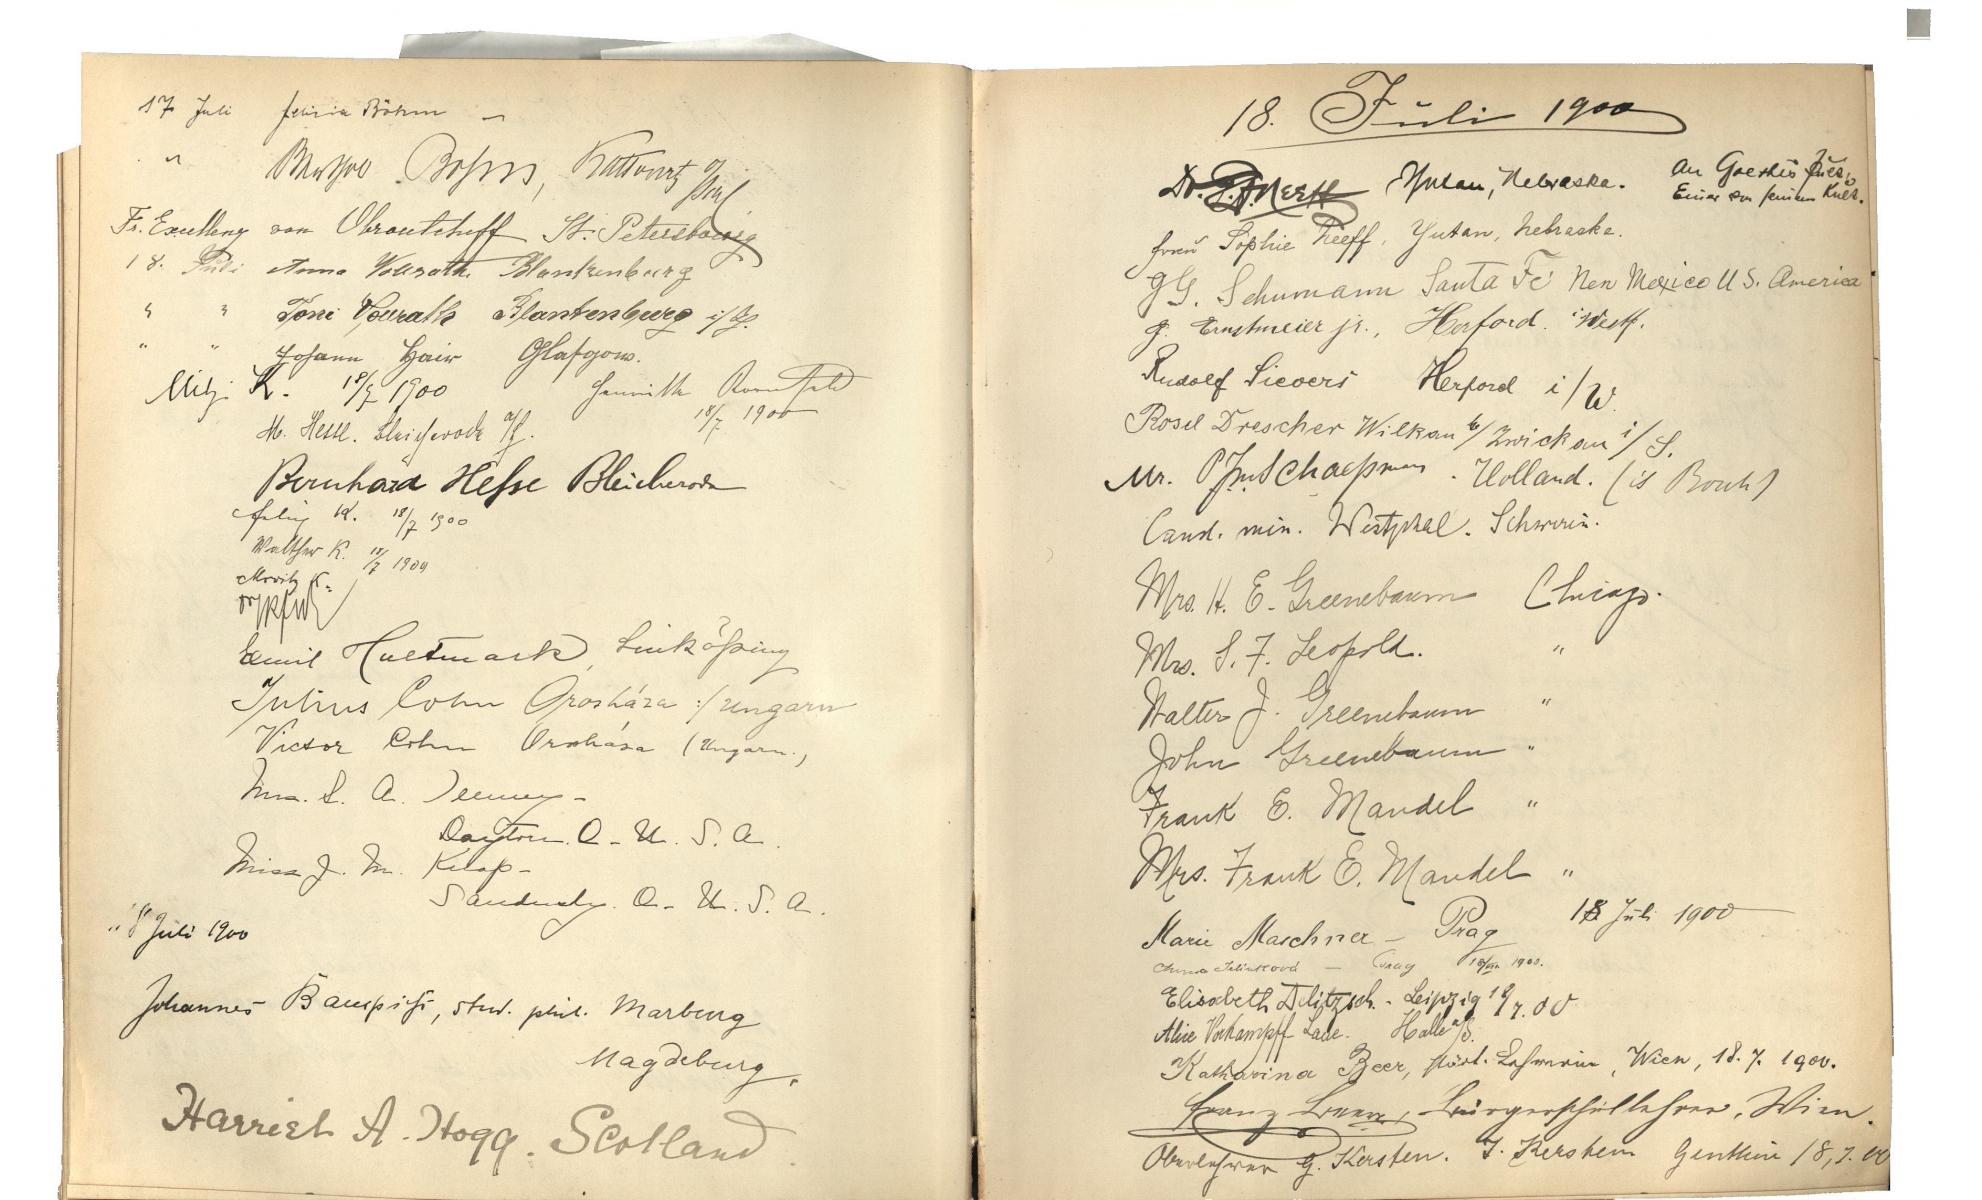 17 Juli Felicia Böhm
"
Fr. Exellenz von St. Petersbourg
18. Juli Anna Vollrath Blankenburg
" " Toni Vollrath Blankenburg i/H.
" " Johann Hair Glasgow.
Mitzi K. 18/7 1900
18/7 1900
M. Hesse. Bleicherode a/H.
Bernhard Hesse Bleicherode
K. 18/7 1900
Walther K. 18/7 1900
Moritz K.
Emil Hultmark, Linköping
Julius Cohn Orosháza /Ungarn
Victor Cohn Orosháza (Ungarn.)
Mrs. S. A.
Dayton. O - U. S. A.
Miss J. M.
Sandusky. O - U. S. A.
18 Juli 1900
Johannes stud. phil. Marburg
Magdeburg.
Harriet A. Hogg. Scotland
18. Juli 1900
Dr. Yutan, Nebraska.
Frau Sophie Neeff, Yutan, Nebraska.
G G. Schumann Santa Fé New Mexico U S. America
G. Ernstmeier jr., Herford. i Westf.
Rudolf Sievers Herford i/W.
Rosel Drescher Wilkau b/Zwickau i/S.
Mr. Schaepman. Holland.
Cand. min. Westphal. Schwerin.
Mrs. H. E. Greenebaum Chicago.
Mrs. S. F. Leopold. "
Walter J. Greenebaum "
John Greenebaum "
Frank E. Mandel "
Mrs. Frank E. Mandel "
Marie Maschner - Prag 18 Juli 1900
- Prag 18/VII 1900.
Elisabeth Delitzsch. - Leipzig 18/7. 00
Alice Vorkampff Laue. Halle a/S.
Katharina Beer, städt. Lehrerin, Wien, 18. 7. 1900.
Franz Bürgerschullehrer, Wien.
Oberlehrer G. Kersten. J. Kersten Genthin 18, 7. 00